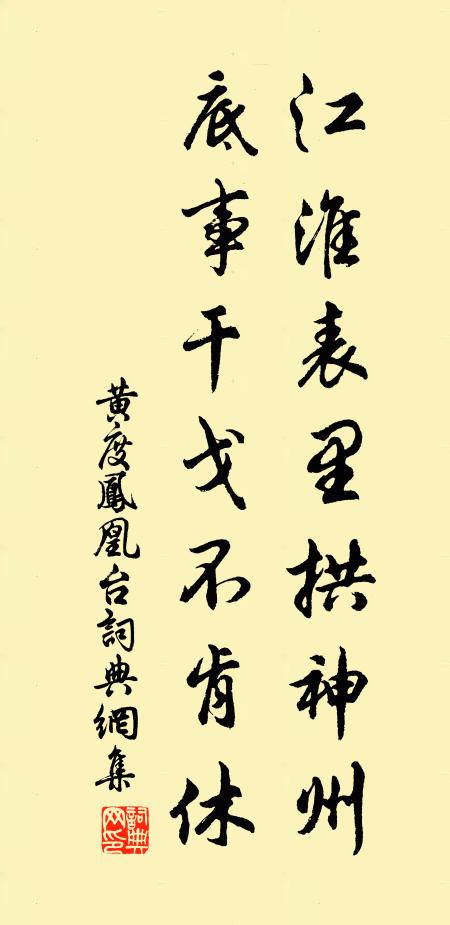 江淮表里拱神州
底事干戈不肯休
黄度鳳凰台詞典網集
詞典
网印